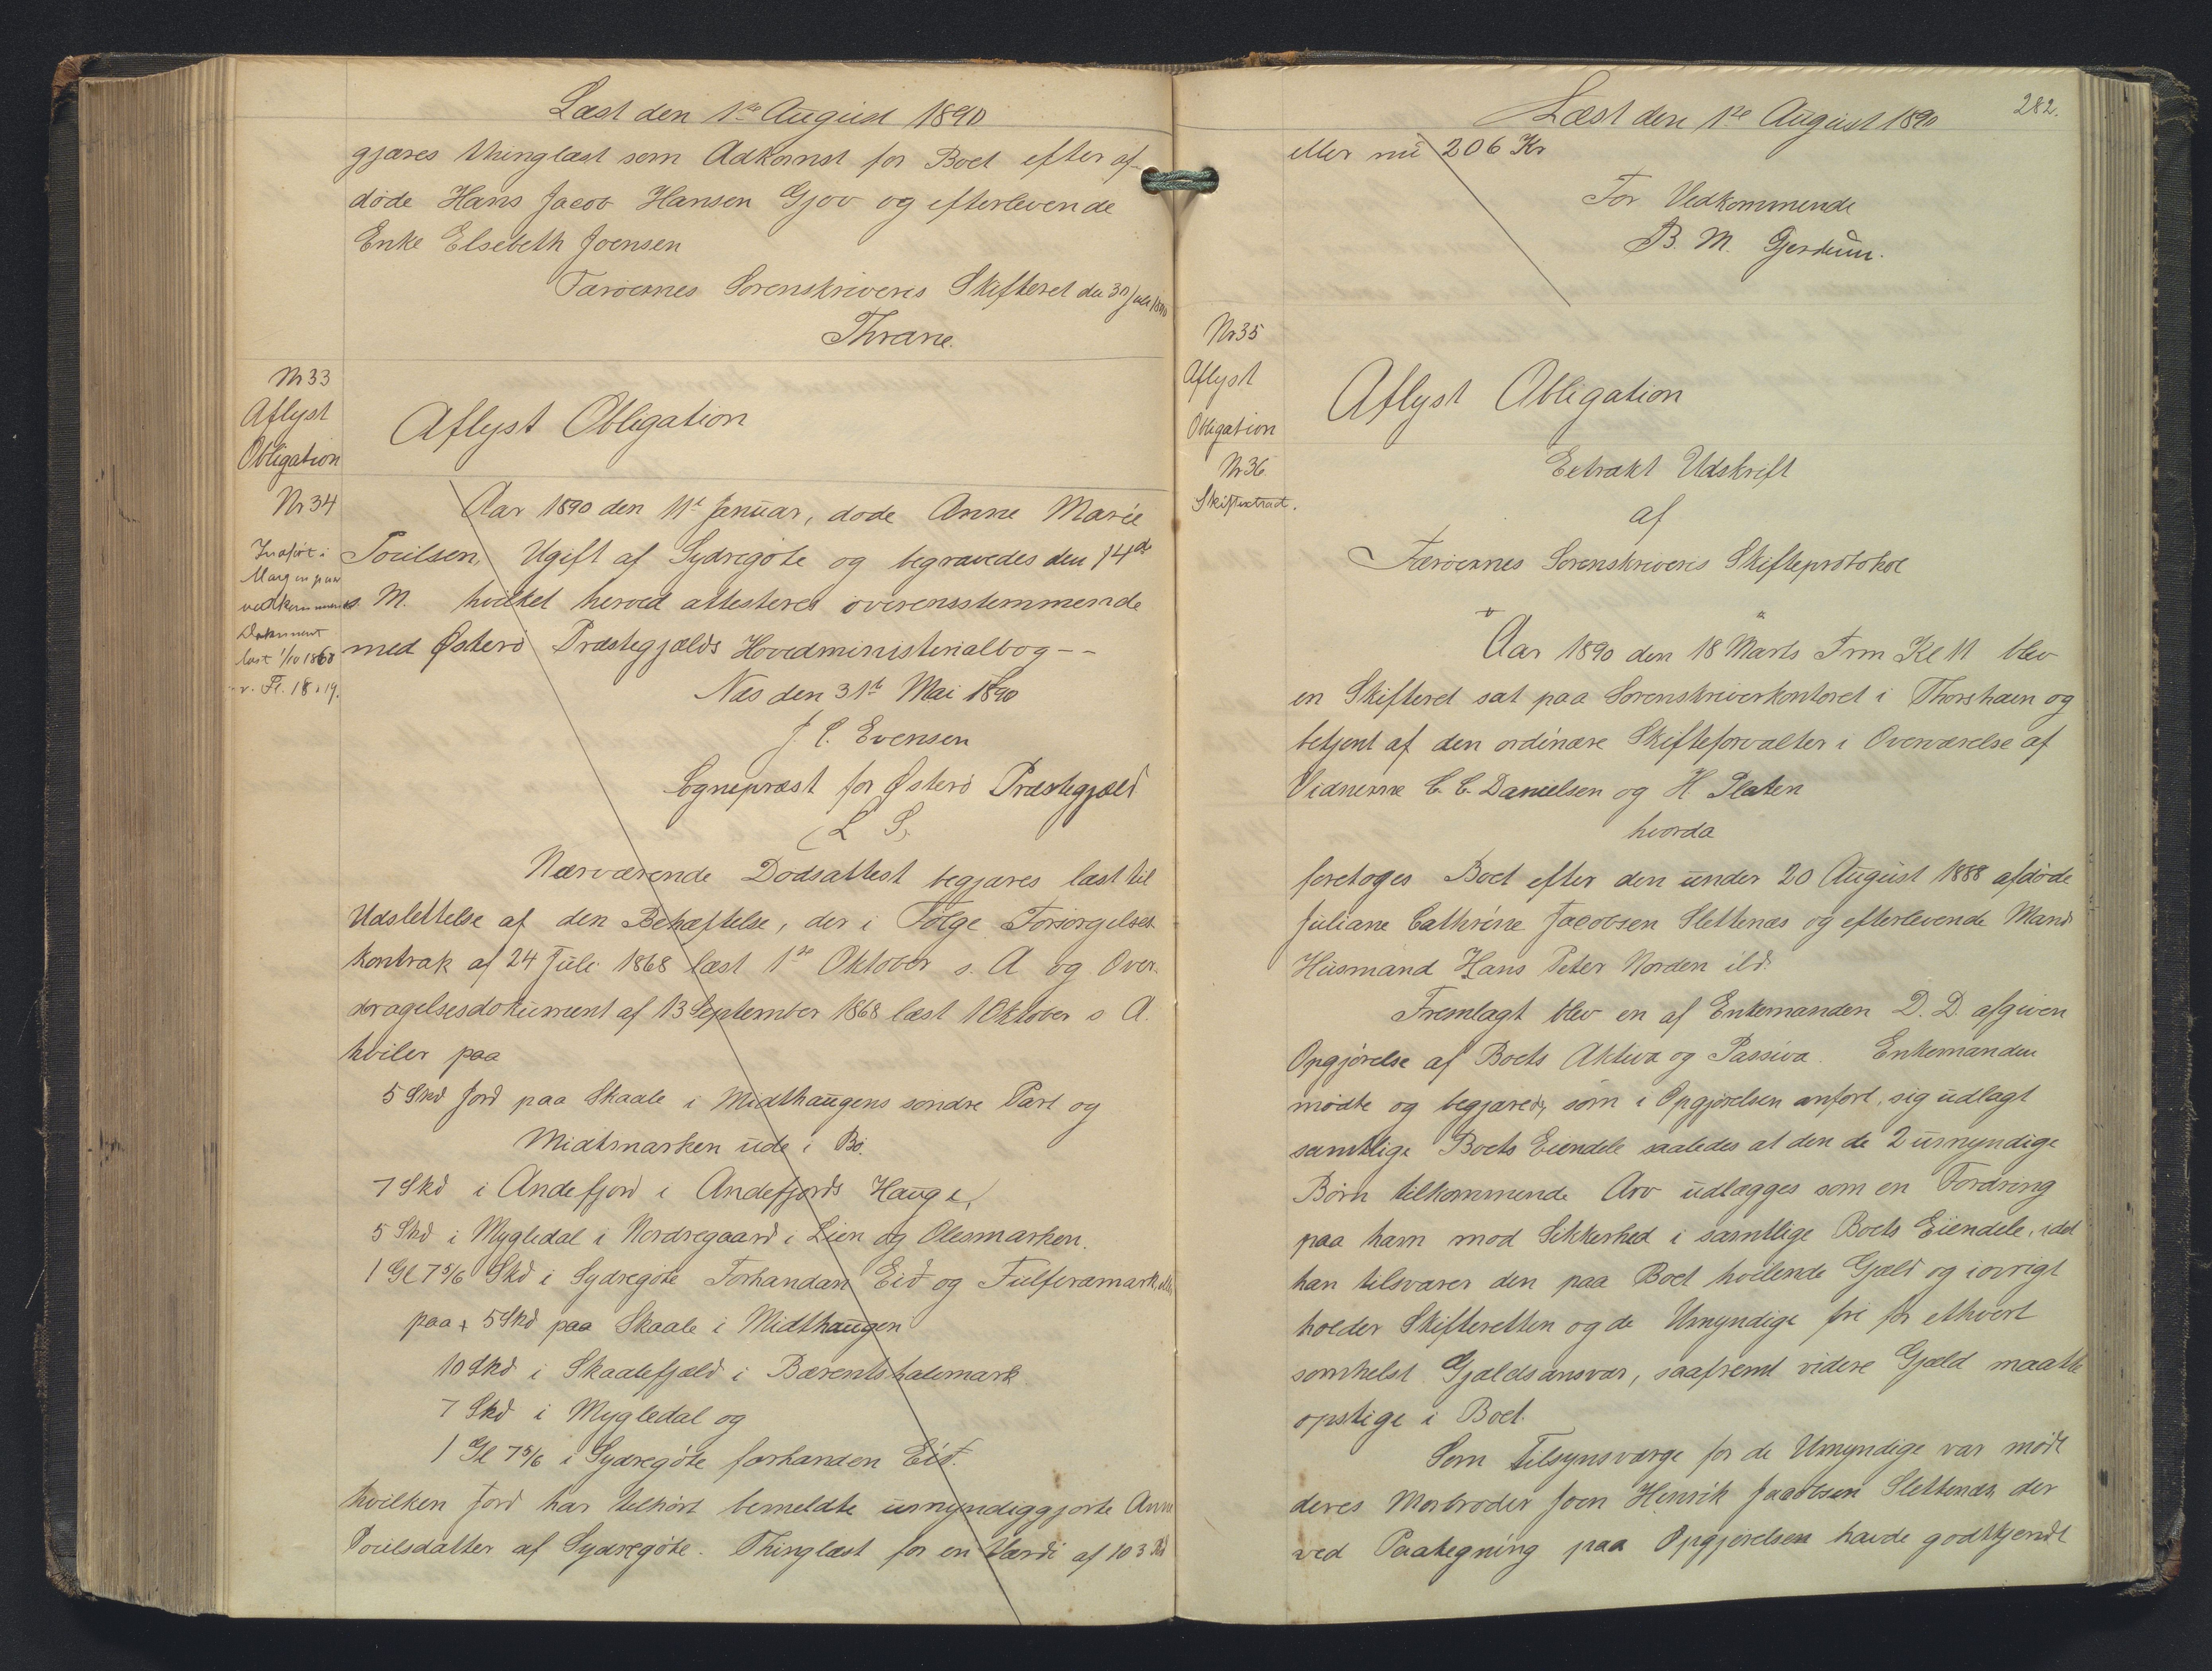 Læst den 1ste August 1890
gjæres thinglæst som Adkomst for Boet efter af-
døde Hans Jacob Hansen Gjov og efterlevende
Enke Elsebeth Joensen
Færøernes Sorenskriveris Skifteret den 31 Juli 1890
Thrane.
Nr 33
Aflyst
Obligation
Aflyst Obligation
Nr 34
Indført i
Margen paa
vedkommende
Dokument
læst 1/10 1868
v. Fl. 18 & 19.
Aar 1890 den 11te Januar, døde Anne Marie
Poulsen, Ugift af Sydregøte og begravedes den 14de
s. M. hvilket herved attesteres overensstemmende
med Østerø Præstegjælds Hovedministerialbog - -
Næs den 31te Mai 1890
J. C. Evensen
Sognepræst for Østerø Præstegjæld
(L S)
Nærværende Dødsattest begjæres læst til
Udslettelse af den Behæftelse, der i Følge Forsørgelses
kontrak af 24 Juli 1868 læst 1ste Oktober s. A og Over-
dragelsesdokument af 13 September 1868 læst 1 Oktober s A.
hviler paa
5 Skd Jord paa Skaale i Midthaugens søndre Part og
Midtmarken ude i Bø.
7 Skd i Andefjord i Andefjords Hauge,
5 Skd i Mygledal i Nordregaard i Lien og Olesmarken.
1 Gl 7 5/6 Skd i Sydregøte Forhandan Eid og Fulferamark, eller
paa + 5 Skd paa Skaale i Midthaugen
10 Skd i Skaalefjæld i Bærentshalemark
7 Skd i Mygledal og
1 Gl 7 5/6 i Sydregøte forhanden Eid.
hvilken Jord har tilhørt bemeldte umyndiggjorte Anne
Poulsdatter af Sydregøte. Thinglæst for en Værdi af 103 Rd
Læst den 1ste August 1890
282.
eller nu 206 Kr
For Vedkommende
B. M. Gjerdum.
Nr 35
Aflyst
Obligation
Aflyst Obligation
Nr 36
Skifteextract.
Extrakt Udskrift
af
Færøernes Sorenskriveris Skifteprotokol
Aar 1890 den 18 Marts Frm Kl 11 blev
en Skifteret sat paa Sorenskriverkontoret i Thorshavn og
betjent af den ordinære Skifteforvalter i Overværelse af
Vidnerne C. C. Danielsen og H Platen
hvorda
foretoges Boet efter den under 20 August 1888 afdøde
Juliane Cathrine Jacobsen Slettenæs og efterlevende Mand
Husmand Hans Peter Norden ild.
Fremlagt blev en af Enkemanden D. D. afgiven
Opgjørelse af Boets Aktiva og Passiva. Enkemanden
mødte og begjærede, som i Opgjørelsen anført, sig udlagt
samtlige Boets Eiendele saaledes at den de 2 umyndige
Børn tilkommende Arv udlægges som en Fordring
paa ham mod Sikkerhed i samtlige Boets Eiendele, idet
han tilsvarer den paa Boet hvilende Gjæld og iøvrigt
holder Skifteretten og de Umyndige fri for ethvert
somhelst Gjældsansvar, saafremt videre Gjæld maatte
opstige i Boet.
Som Tilsynsværge for de Umyndige var mødt
deres Morbroder Joen Henrik Jacobsen Slettenæs der
ved Paategning paa Opgjørelsen havde godtkjendt